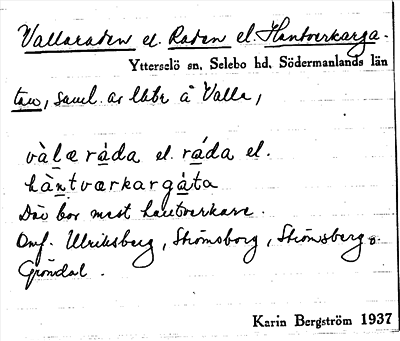 Vallaraden el. Raden el. Hantverkarga-
Ytterselö sn, Selebo hd, Södermanlands län
tan, saml. av lhbr å Valla,
vàlæ ràda el. ráda el.
hàntværkargàta
Där bor mest hantverkare.
Omf. Ulriksberg, Strömsborg, Strömsberg o.
Gröndal.
Karin Bergström 1937